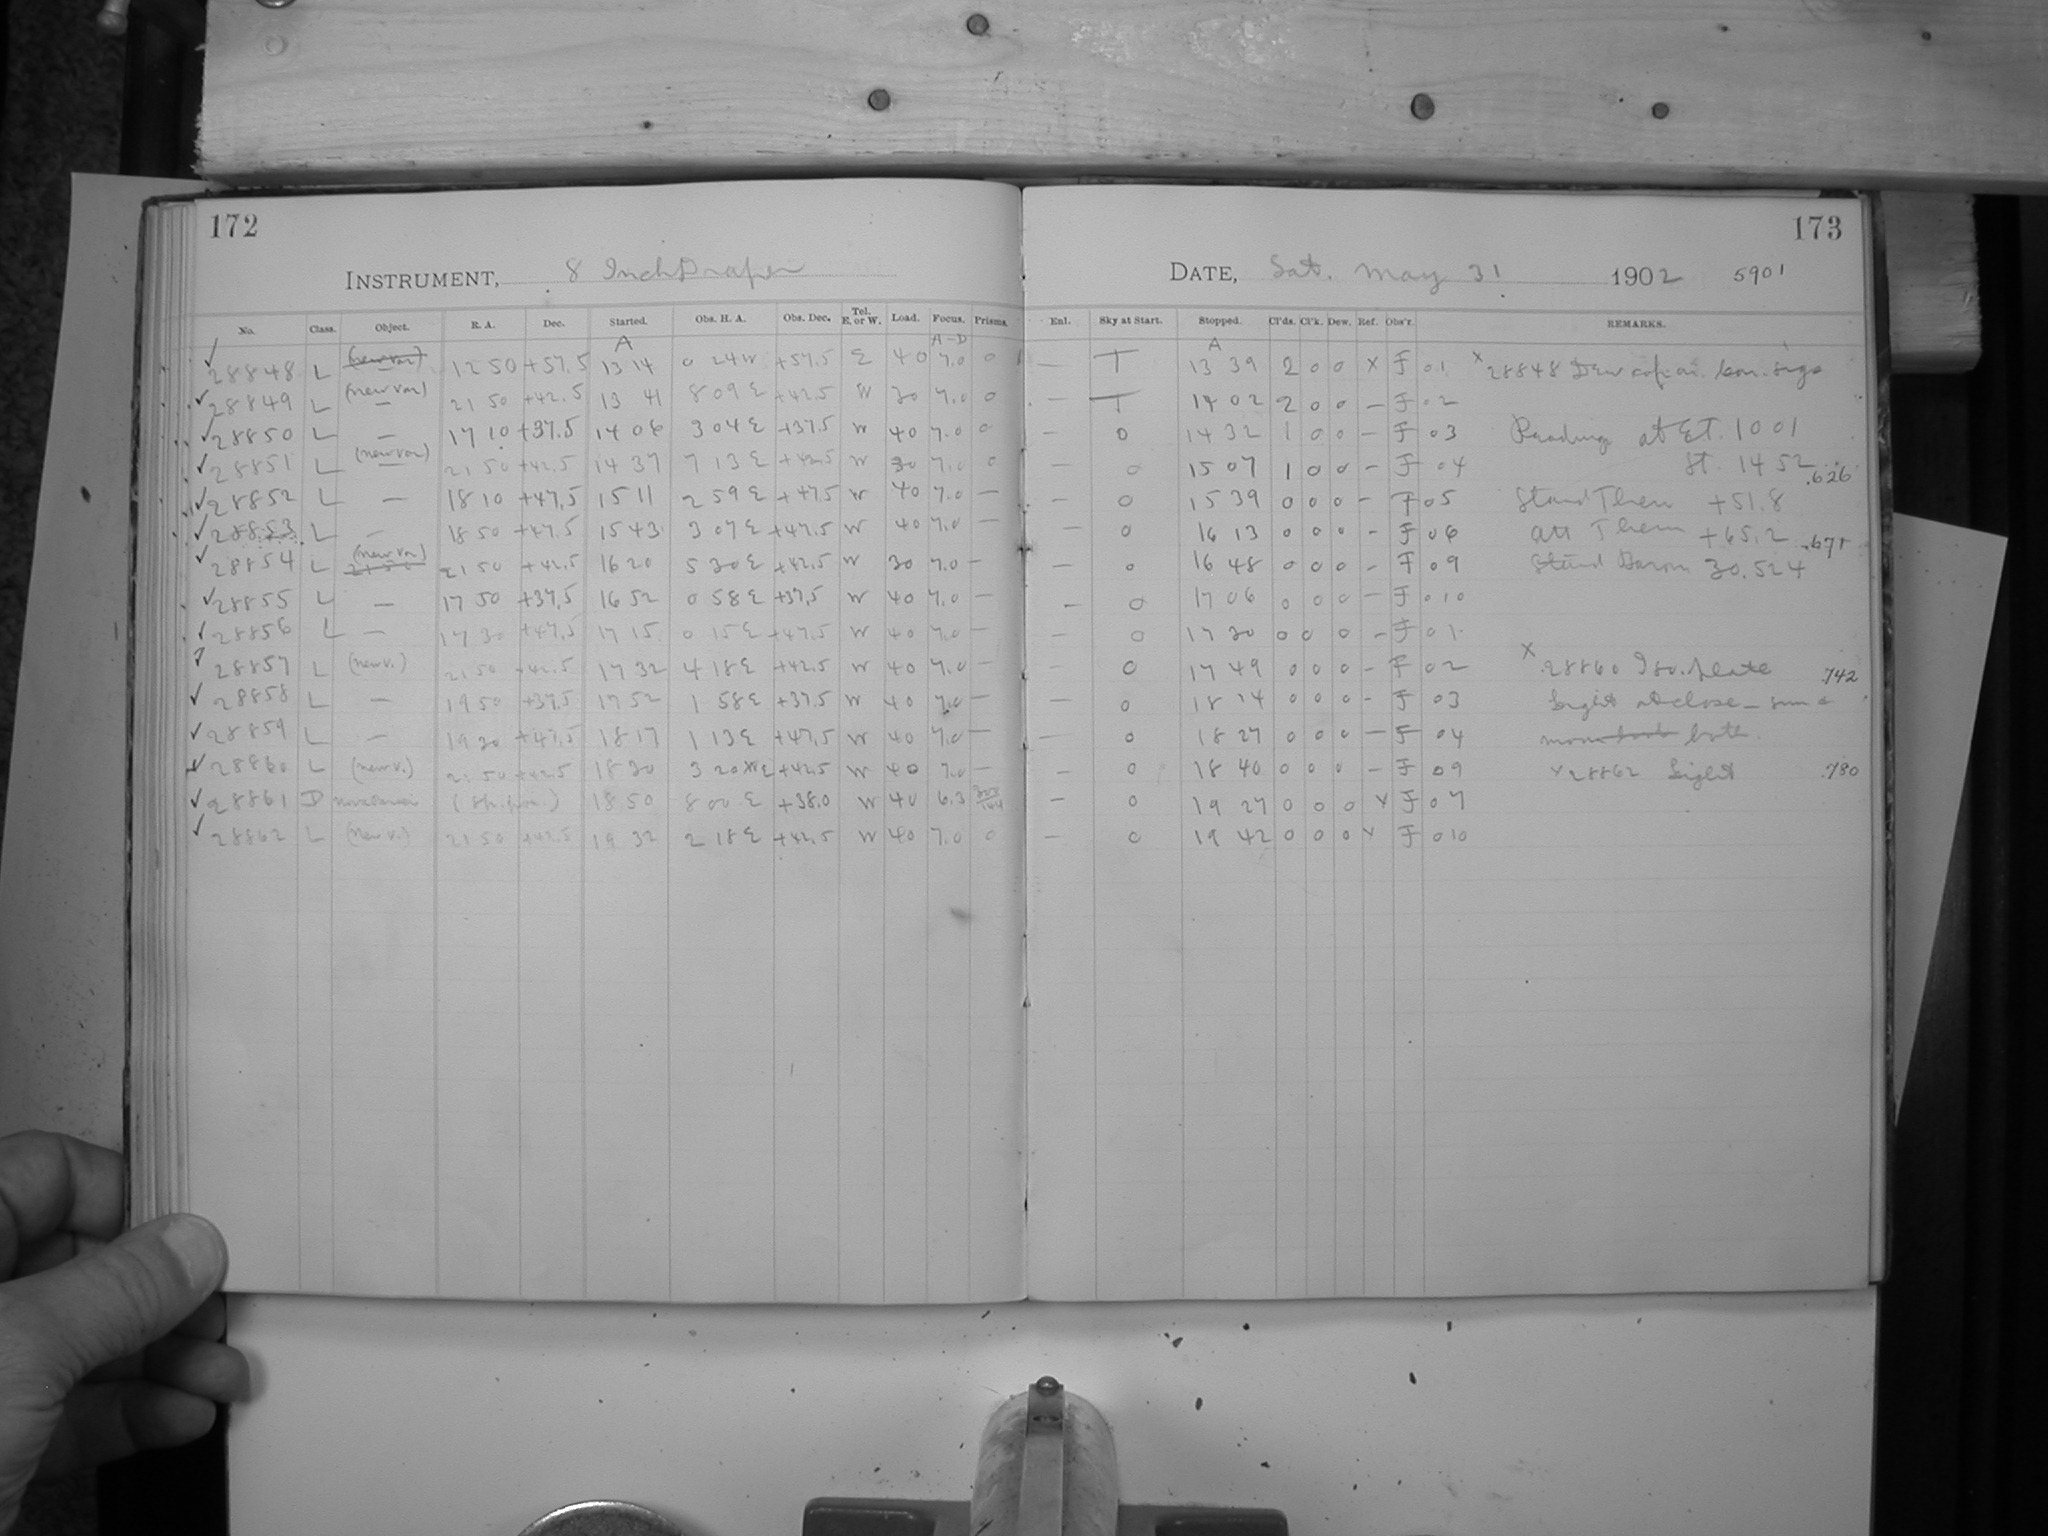 172
INSTRUMENT, 8 Inch Draper
No. Class. Object. R. A. Dec. Started. Obs. H. A. Obs. Dec. Tel. E. or W. Load. Focus. Prisms.
A A-D
28848 L (new var) 12 50 +57.5 13 14 0 24 W +57.5 E 40 7.0 0
28849 L (new var) — 21 50 +42.5 13 41 8 09 E +42.5 W 30 7.0 0
28850 L — 17 10 +37.5 14 06 3 04 E +37.5 W 40 7.0 0
28851 L (new var) — 21 50 +42.5 14 37 7 13 E +42.5 W 30 7.0 0
28852 L — 18 10 +47.5 15 11 2 59 E +47.5 W 40 7.0 —
28853 L — 18 50 +47.5 15 43 3 07 E +47.5 W 40 7.0 —
28854 L (new var) 21 50 21 50 +42.5 16 20 5 30 E +42.5 W 30 7.0 —
28855 L — 17 50 +37.5 16 52 0 58 E +37.5 W 40 7.0 —
28856 L — 17 30 +47.5 17 15 0 15 E +47.5 W 40 7.0 —
28857 L (new v.) 21 50 +42.5 17 32 4 18 E +42.5 W 40 7.0 —
28858 L — 19 50 +37.5 17 52 1 58 E +37.5 W 40 7.0 —
28859 L — 19 30 +47.5 18 17 1 13 E +47.5 W 40 7.0 —
28860 L (new v.) 21 50 +42.5 18 30 3 20 E +42.5 W 40 7.0 —
28861 D 18 50 8 00 E +38.0 W 40 6.3
28862 L (new v.) 21 50 +42.5 19 32 2 18 E +42.5 W 40 7.0 0
173
DATE, Sat. May 31 1902 5901
Enl. Sky at Start. Stopped. Cl'ds. Cl'k. Dew. Ref. Obs'r. REMARKS.
A
— T 13 39 2 0 0 X F 01 X 28848 Dew
— T 14 02 2 0 0 — F 02
— 0 14 32 1 0 0 — F 03 Reading at E.T. 10 01
— 0 15 07 1 0 0 — F 04 St. 14 52 .626
— 0 15 39 0 0 0 — F 05 Stand Them +51.8
— 0 16 13 0 0 0 — F 06 Att Them +65.2 .671
— 0 16 48 0 0 0 — F 09 Stand Barom 30.524
— 0 17 06 0 0 0 — F 010
— 0 17 30 0 0 0 — F 01
— 0 17 49 0 0 0 — F 02 X 28860 Iso. plate .742
— 0 18 14 0 0 0 — F 03 Light at close — sun &
— 0 18 27 0 0 0 — F 04 moon both both.
— 0 18 40 0 0 0 — F 09 X 28862 Light .780
— 0 19 27 0 0 0 X F 07
— 0 19 42 0 0 0 X F 010